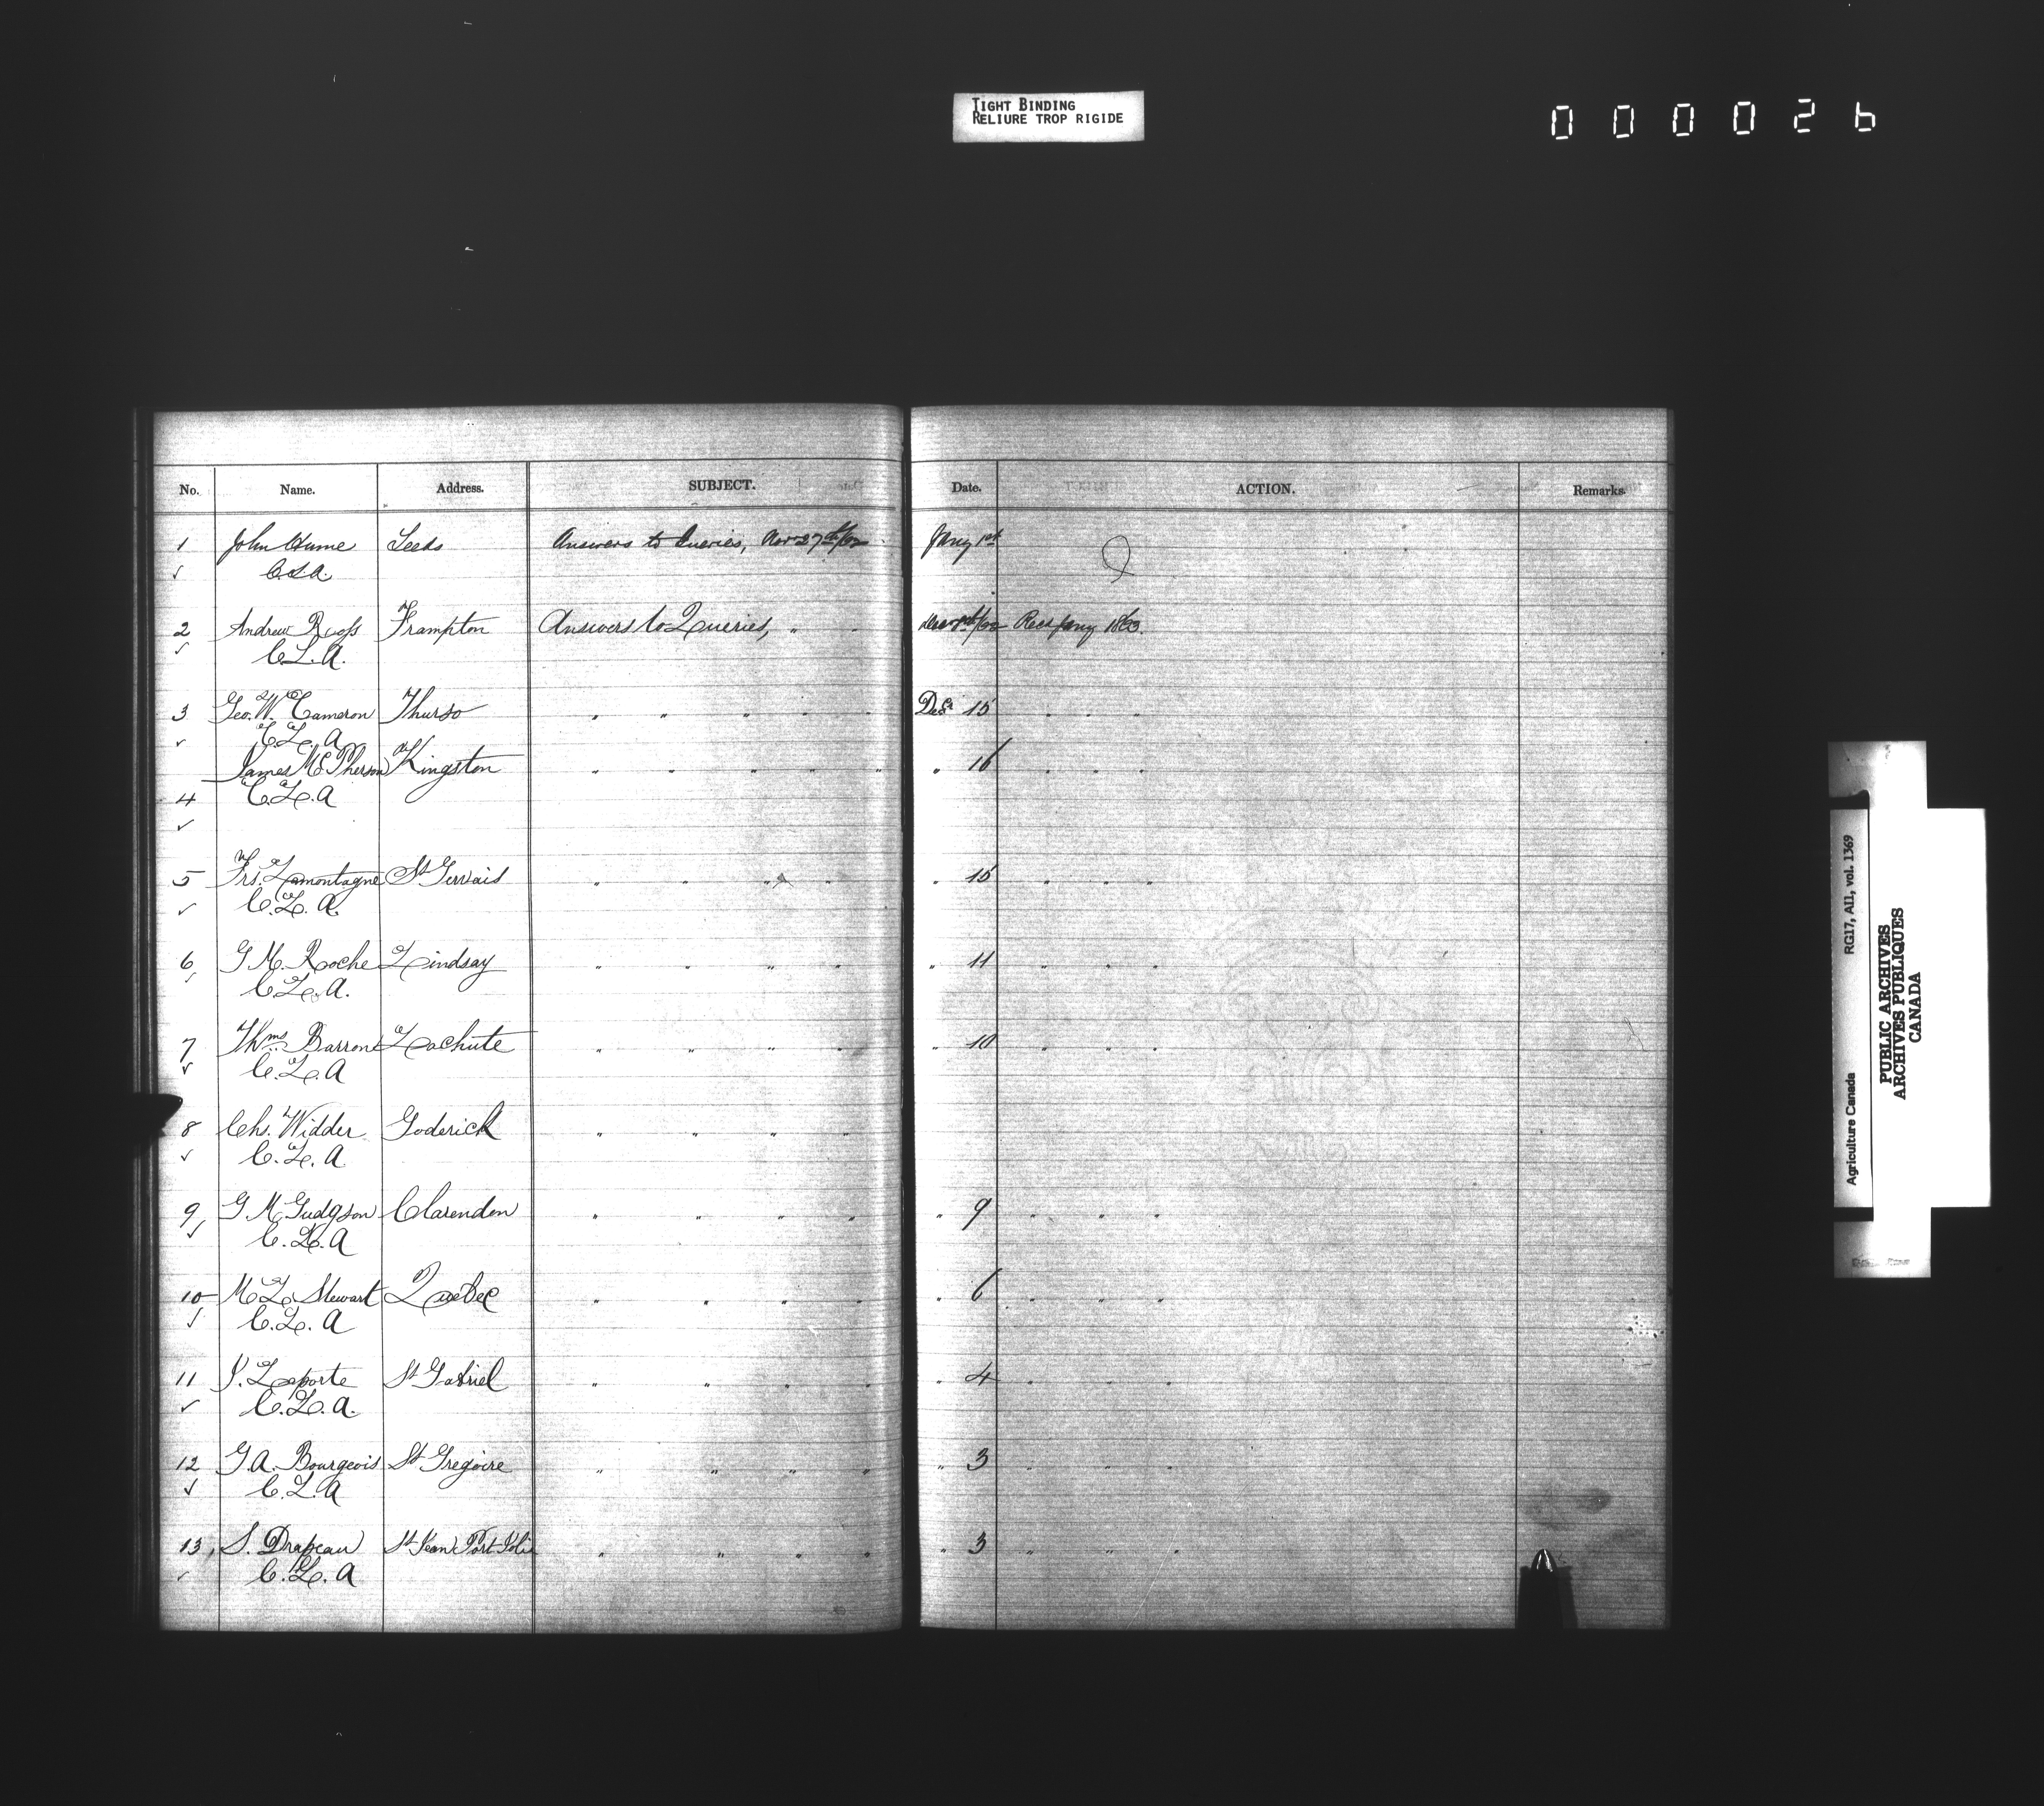 TIGHT BINDING
RELIURE TROP RIGIDE
000026
No. Name. Address. SUBJECT. Date. ACTION. Remarks.
1 John Hume Leeds Answers to Queries, Nov 27th/62 Jany 1st
✓ C.L.A.
2 Andrew Ross Frampton Answers to Queries, " " Dec 1st/62 Recd Jany 1863.
✓ C.L.A.
3 Geo. W. Cameron Thurso " " " " " Dec 15 " " "
✓ C.L.A
James McPherson Kingston " " " " " " 16 " " "
4 C.L.A
✓
5 Frs. Lamontagne St Gervais " " " " " 15 " " "
✓ C.L.A.
6 G M. Roche Lindsay " " " " " 11 " " "
✓ C.L.A.
7 Thms Barron Lachute " " " " " 10 " " "
✓ C.L.A
8 Chs. Widder Goderich " " " "
✓ C.L.A
9 G. M Judgson Clarendon " " " " " 9 " " "
✓ C.L.A
10 McL. Stewart Quebec " " " " " 6 " " "
✓ C.L.A
11 J. Laporte St Gabriel " " " " " 4 " " "
✓ C.L.A.
12 G.A. Bourgeois St Gregoire " " " " " 3 " " "
✓ C.L.A
13 S. Drapeau St Jean Port Joli " " " " " 3 " " "
✓ C.L.A
Agriculture Canada RG17, AII, vol. 1369
PUBLIC ARCHIVES
ARCHIVES PUBLIQUES
CANADA